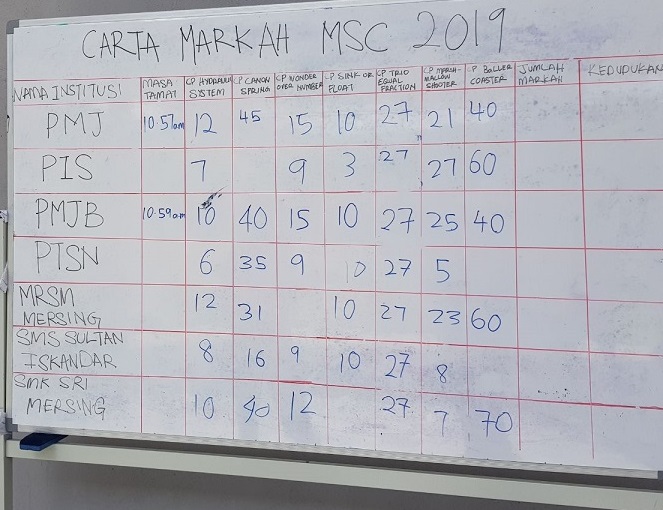 CARTA MARKAH MSC 2019
NAMA INSTITUSI MASA TAMAT CP HYDRAULIC SYSTEM CP CANON SPRING CP WONDER OVER NUMBER CP SINK OR FLOAT CP TRIO EQUAL FRACTION CP MARSH-MALLOW SHOOTER P BOLLER COASTER JUMLAH MARKAH KEDUDUKAN
PMJ 10:57am 12 45 15 10 27 21 40
PIS 7 9 3 27 27 60
PMJB 10:59am 10 40 15 10 27 25 40
PTSN 6 35 9 10 27 5
MRSM MERSING 12 31 10 27 23 60
SMS SULTAN ISKANDAR 8 16 9 10 27 8
SMK SRI MERSING 10 40 12 27 7 70